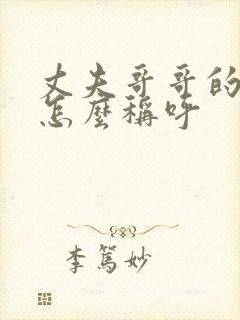 丈夫哥哥的
怎麼稱呼
李篤妙